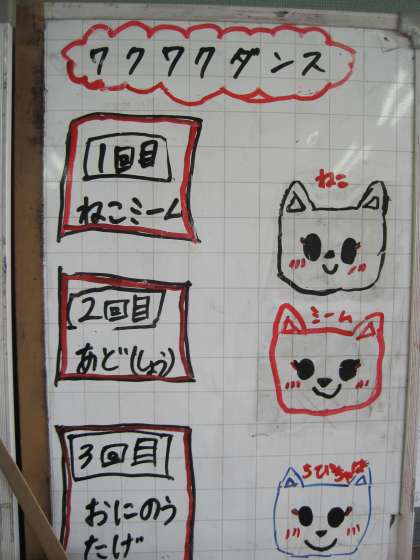 ワクワクダンス
1回目
ねこミーム
ねこ
2回目
あど(しょう)
ミーム
3回目
おにのう
たげ